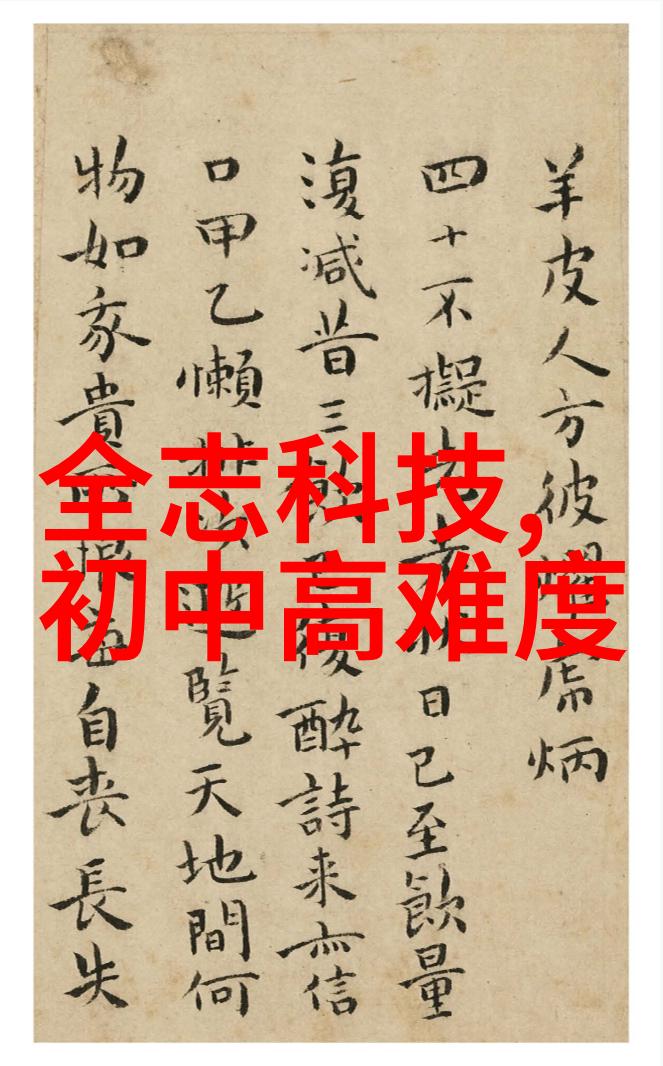 全志科技,
初中高难度
羊皮人方彼 席炳
四十不擬 日已至飲量
復减昔三 復醉詩来亦信
口甲乙懒 遊覽天地間何
物如豕貴 自丧長失